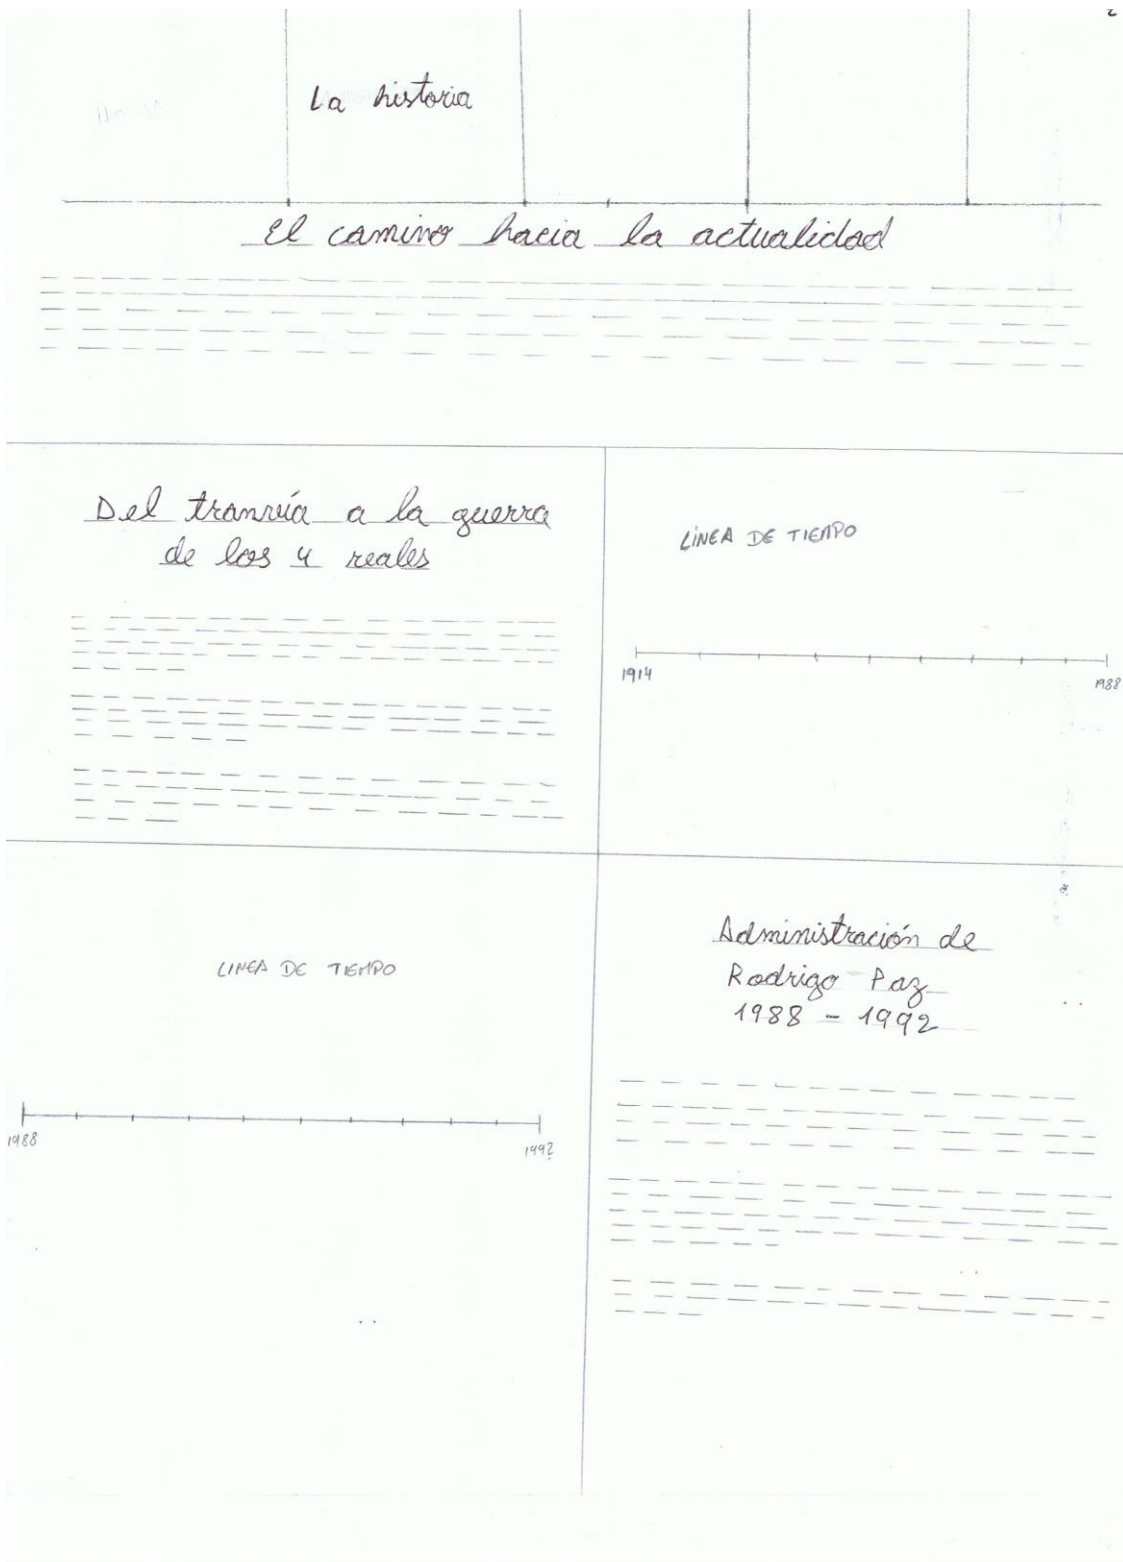 La historia
El camino hacia la actualidad
Del tranvía a la guerra
de los 4 reales
LÍNEA DE TIEMPO
1914
1988
LINEA DE TIEMPO
1988
1992
Administración de
Rodrigo Paz
1988 - 1992